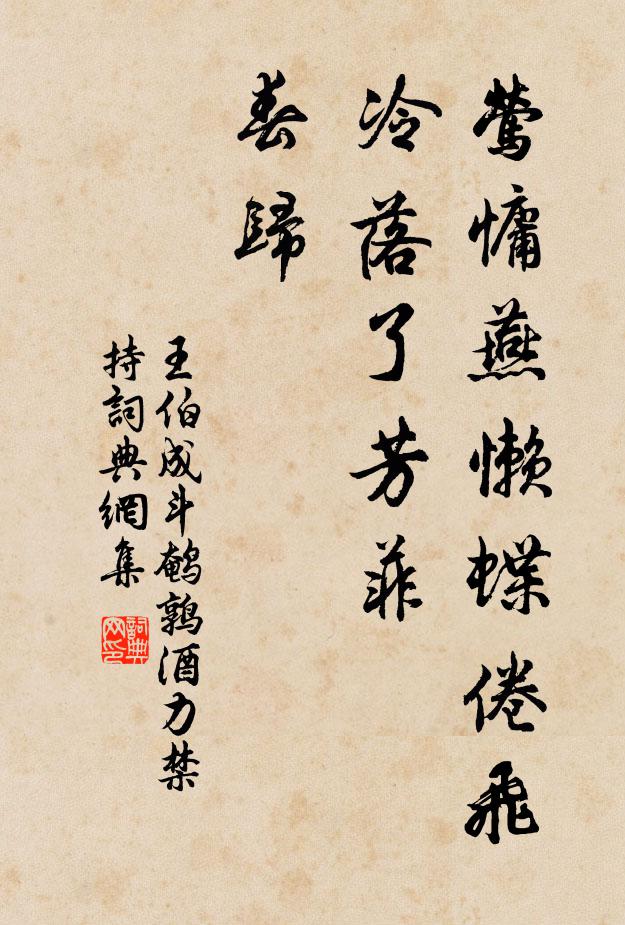 鶯慵燕懶蝶倦飛
冷落了芳菲
春歸
王伯成斗鵪鶉酒力禁
持詞典網集
詞典
网印